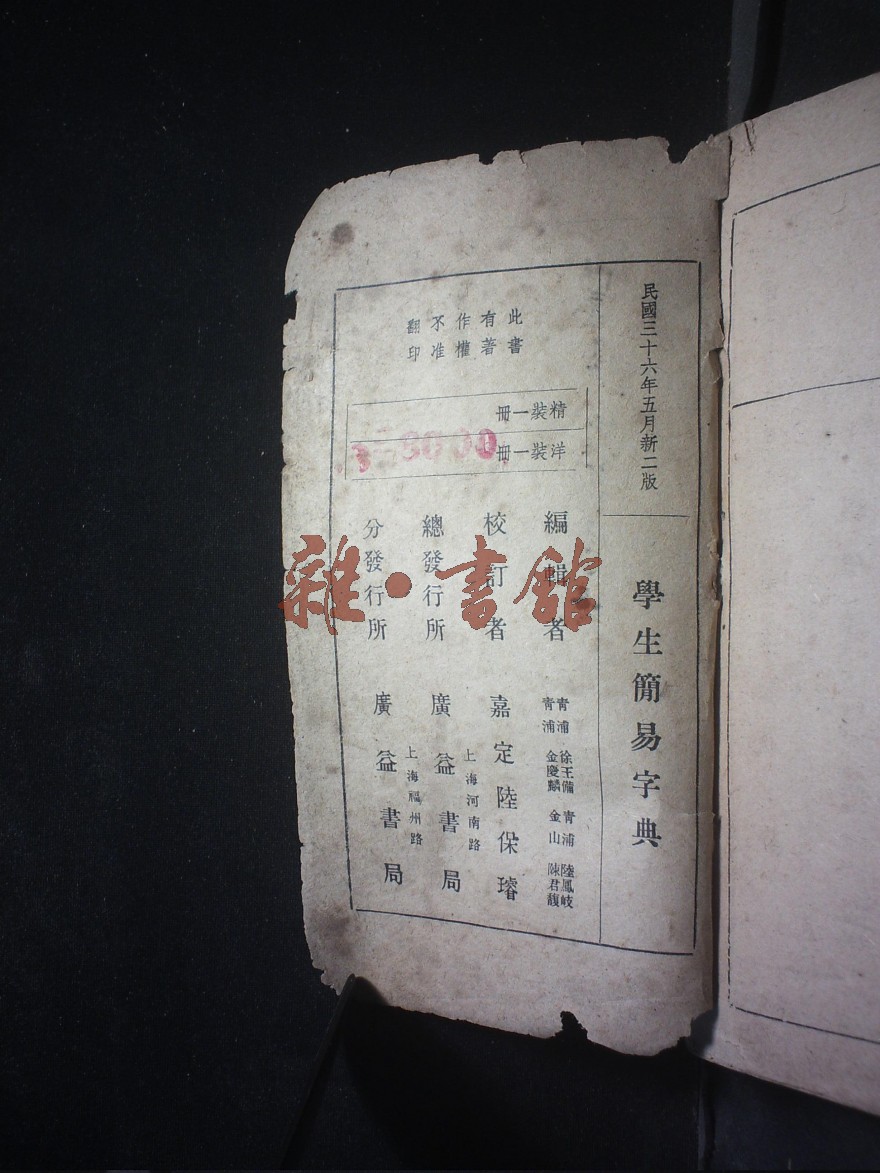 民國三十六年五月新二版
學生簡易字典
此書
有著
作權
不准
翻印
精裝一冊
洋裝一冊
編輯者
青浦 徐王備 青浦 陸鳳岐
青浦 金慶麟 金山 陳君馥
校訂者 嘉定陸保璿
總發行所 上海河南路
廣益書局
分發行所 上海福州路
廣益書局
雜·書館